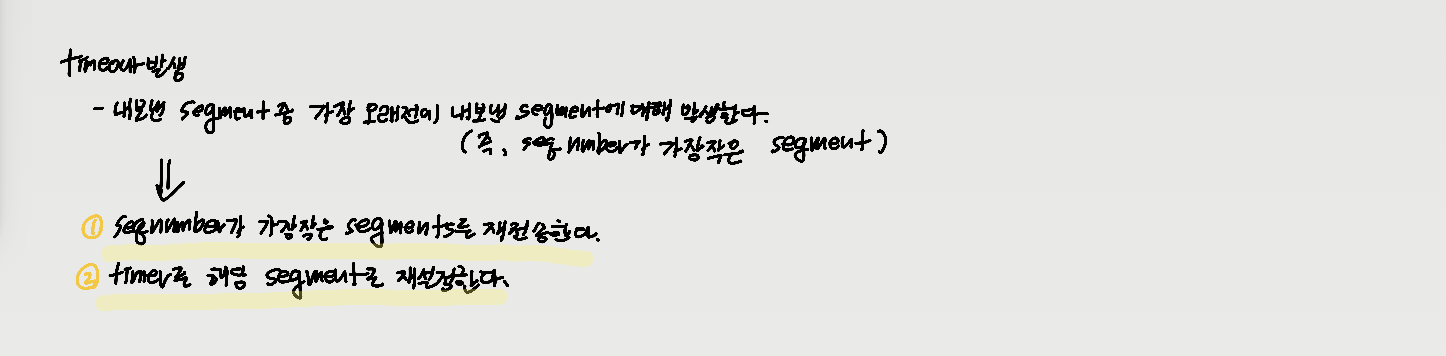 timeout 발생
- 내보낸 segment 중 가장 오래전에 내보낸 segment에 대해 발생한다.
(즉, seq number가 가장작은 segment)
⇓
① seqnumber가 가장작은 segments를 재전송한다.
② timer를 해당 segment로 재설정한다.